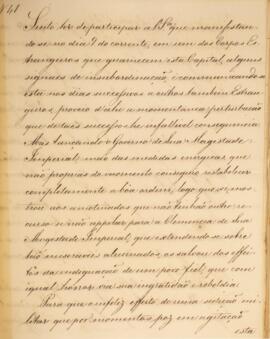 N.º 41
Sinto ter de participar a V. S.ª que manifestan-
do-se no dia 9 do corrente, em um dos Corpos Es-
trangeiros que guarnecem esta Capital, alguns
signaes de insubordinação, e communicando-a
esta nos dias successivos a outros tambem Estran-
geiros, proveio d'ahi a momentanea perturbação
que de taes successos he infallivel consequencia
Mas lançando o Governo de Sua Magestade
Imperial mão das medidas energicas que
são proprias do momento conseguio restabelecer
completamente a boa ordem, logo que se mos-
trou aos amotinados que não tinhão outro re-
curso se não appellar para a Clemencia de Sua
Magestade Imperial, que extendendo-se sobre
tão miseraveis allucinados, os salvou dos effei-
tos da indignação de um povo fiel, que com
igual horror via sua ingratidão e rebeldia.
Para que o infeliz effeito de uma sedição mi-
litar que por momentos poz em agitação
esta